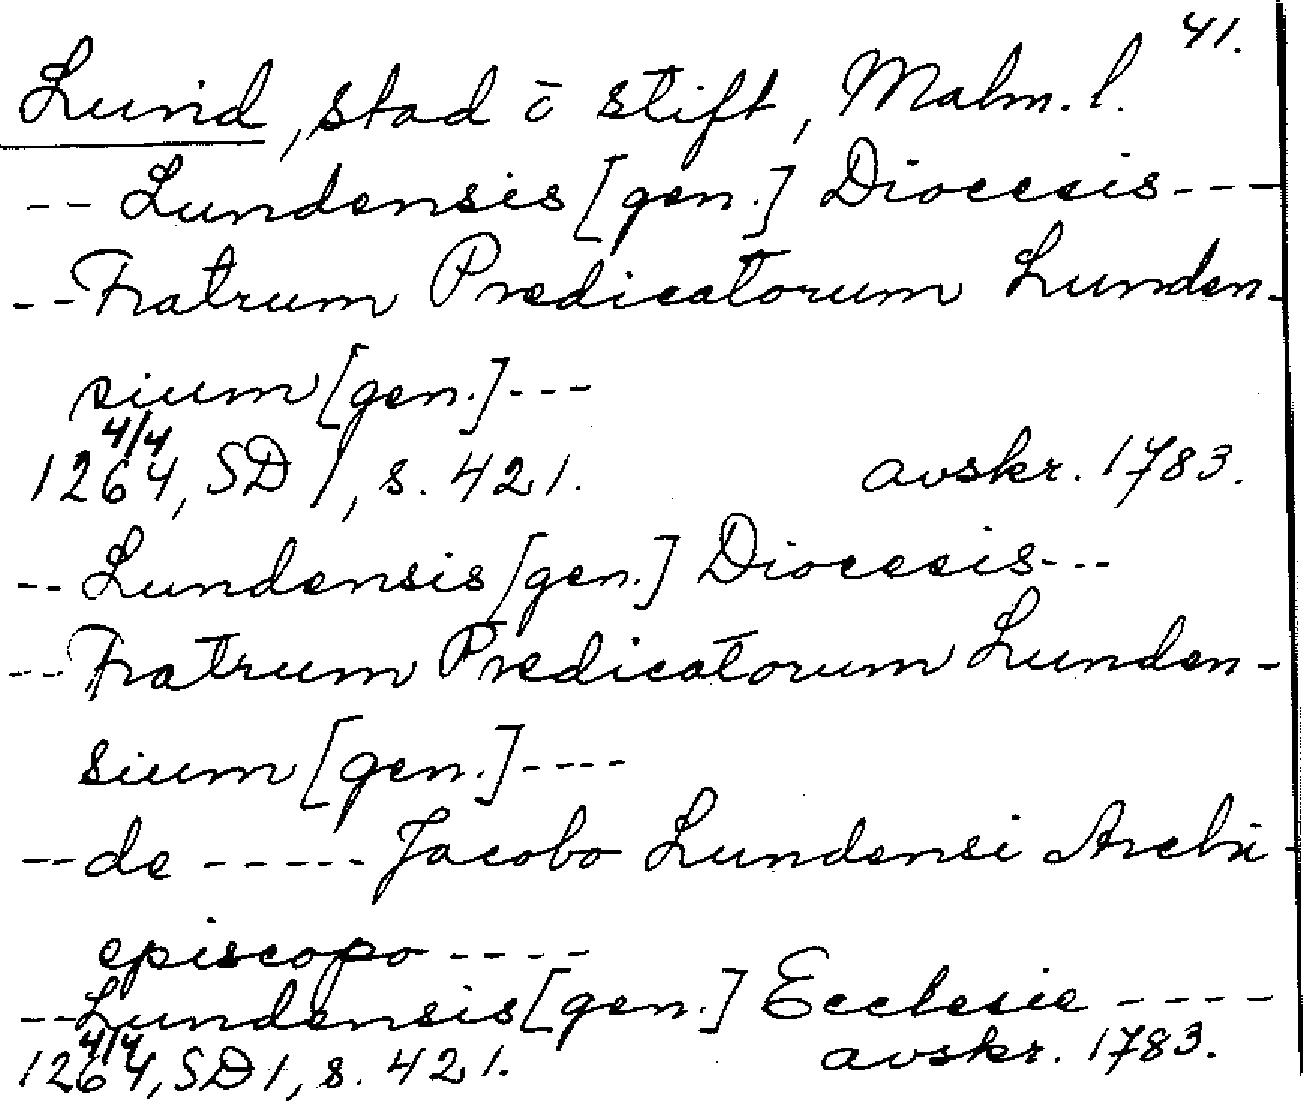 41.
Lund, stad ō stift, Malm. l.
-- Lundensis [gen.] Diocesis ---
-- Fratrum Predicatorum Lunden-
sium [gen.] ---
4/4
1264, SD 1, s. 421. avskr. 1783.
-- Lundensis [gen.] Diocesis ---
-- Fratrum Predicatorum Lunden-
sium [gen.] ----
-- de ----- Jacobo Lundensi Archi-
episcopo ----
-- Lundensis [gen.] Ecclesie ----
4/4
1264, SD 1, s. 421. avskr. 1783.